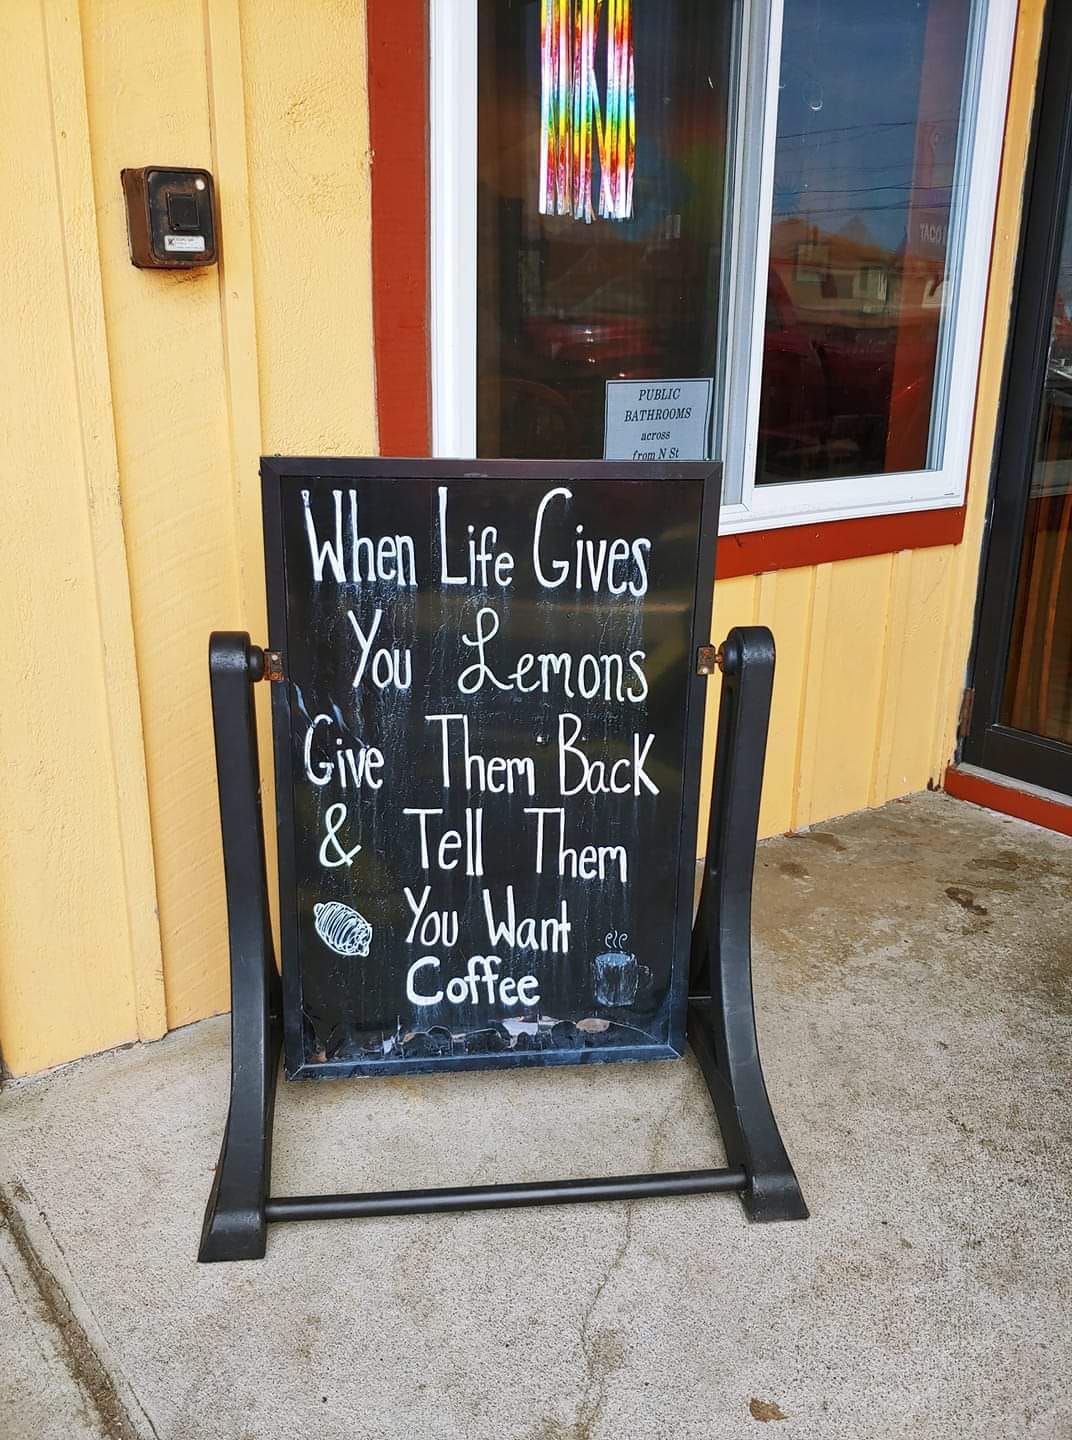 PUBLIC
BATHROOMS
across
from N St
When Life Gives
You Lemons
Give Them Back
& Tell Them
You Want
Coffee